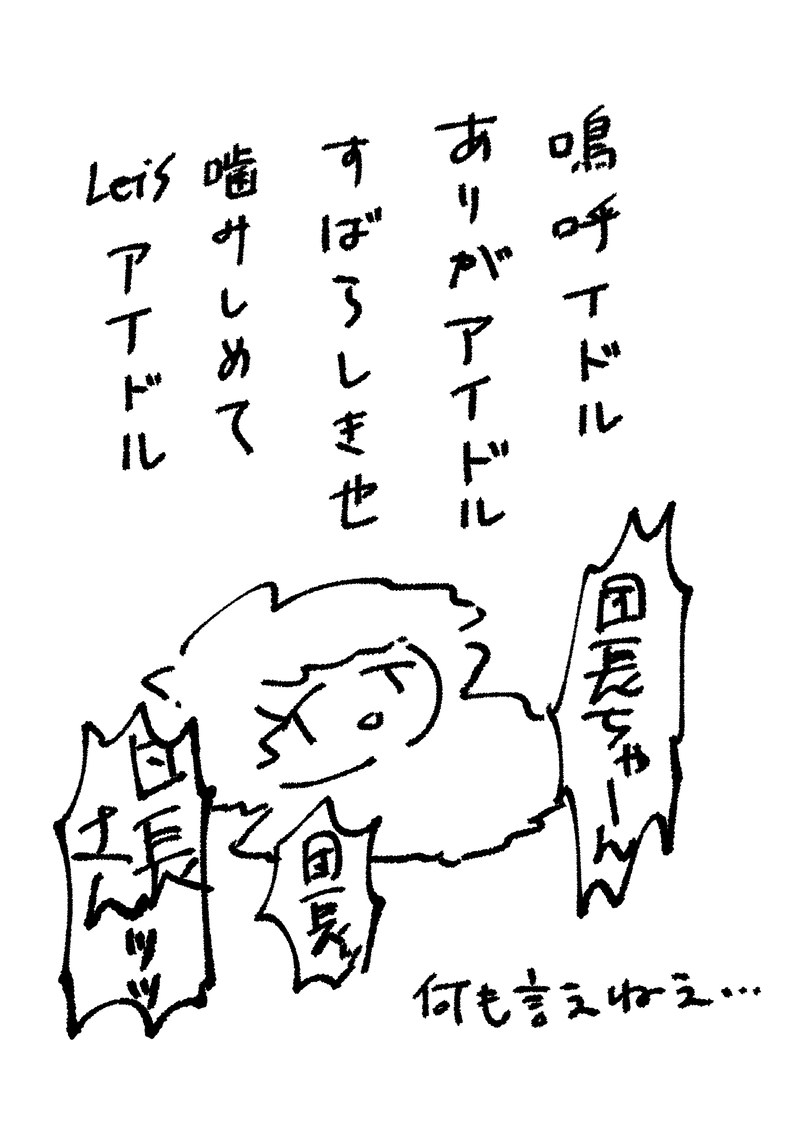 嗚呼イドル
ありがアイドル
すばらしき也
噛みしめて
Let's アイドル
団長ちゃーん
団長ッ
団長
さんッッ
何も言えねえ…